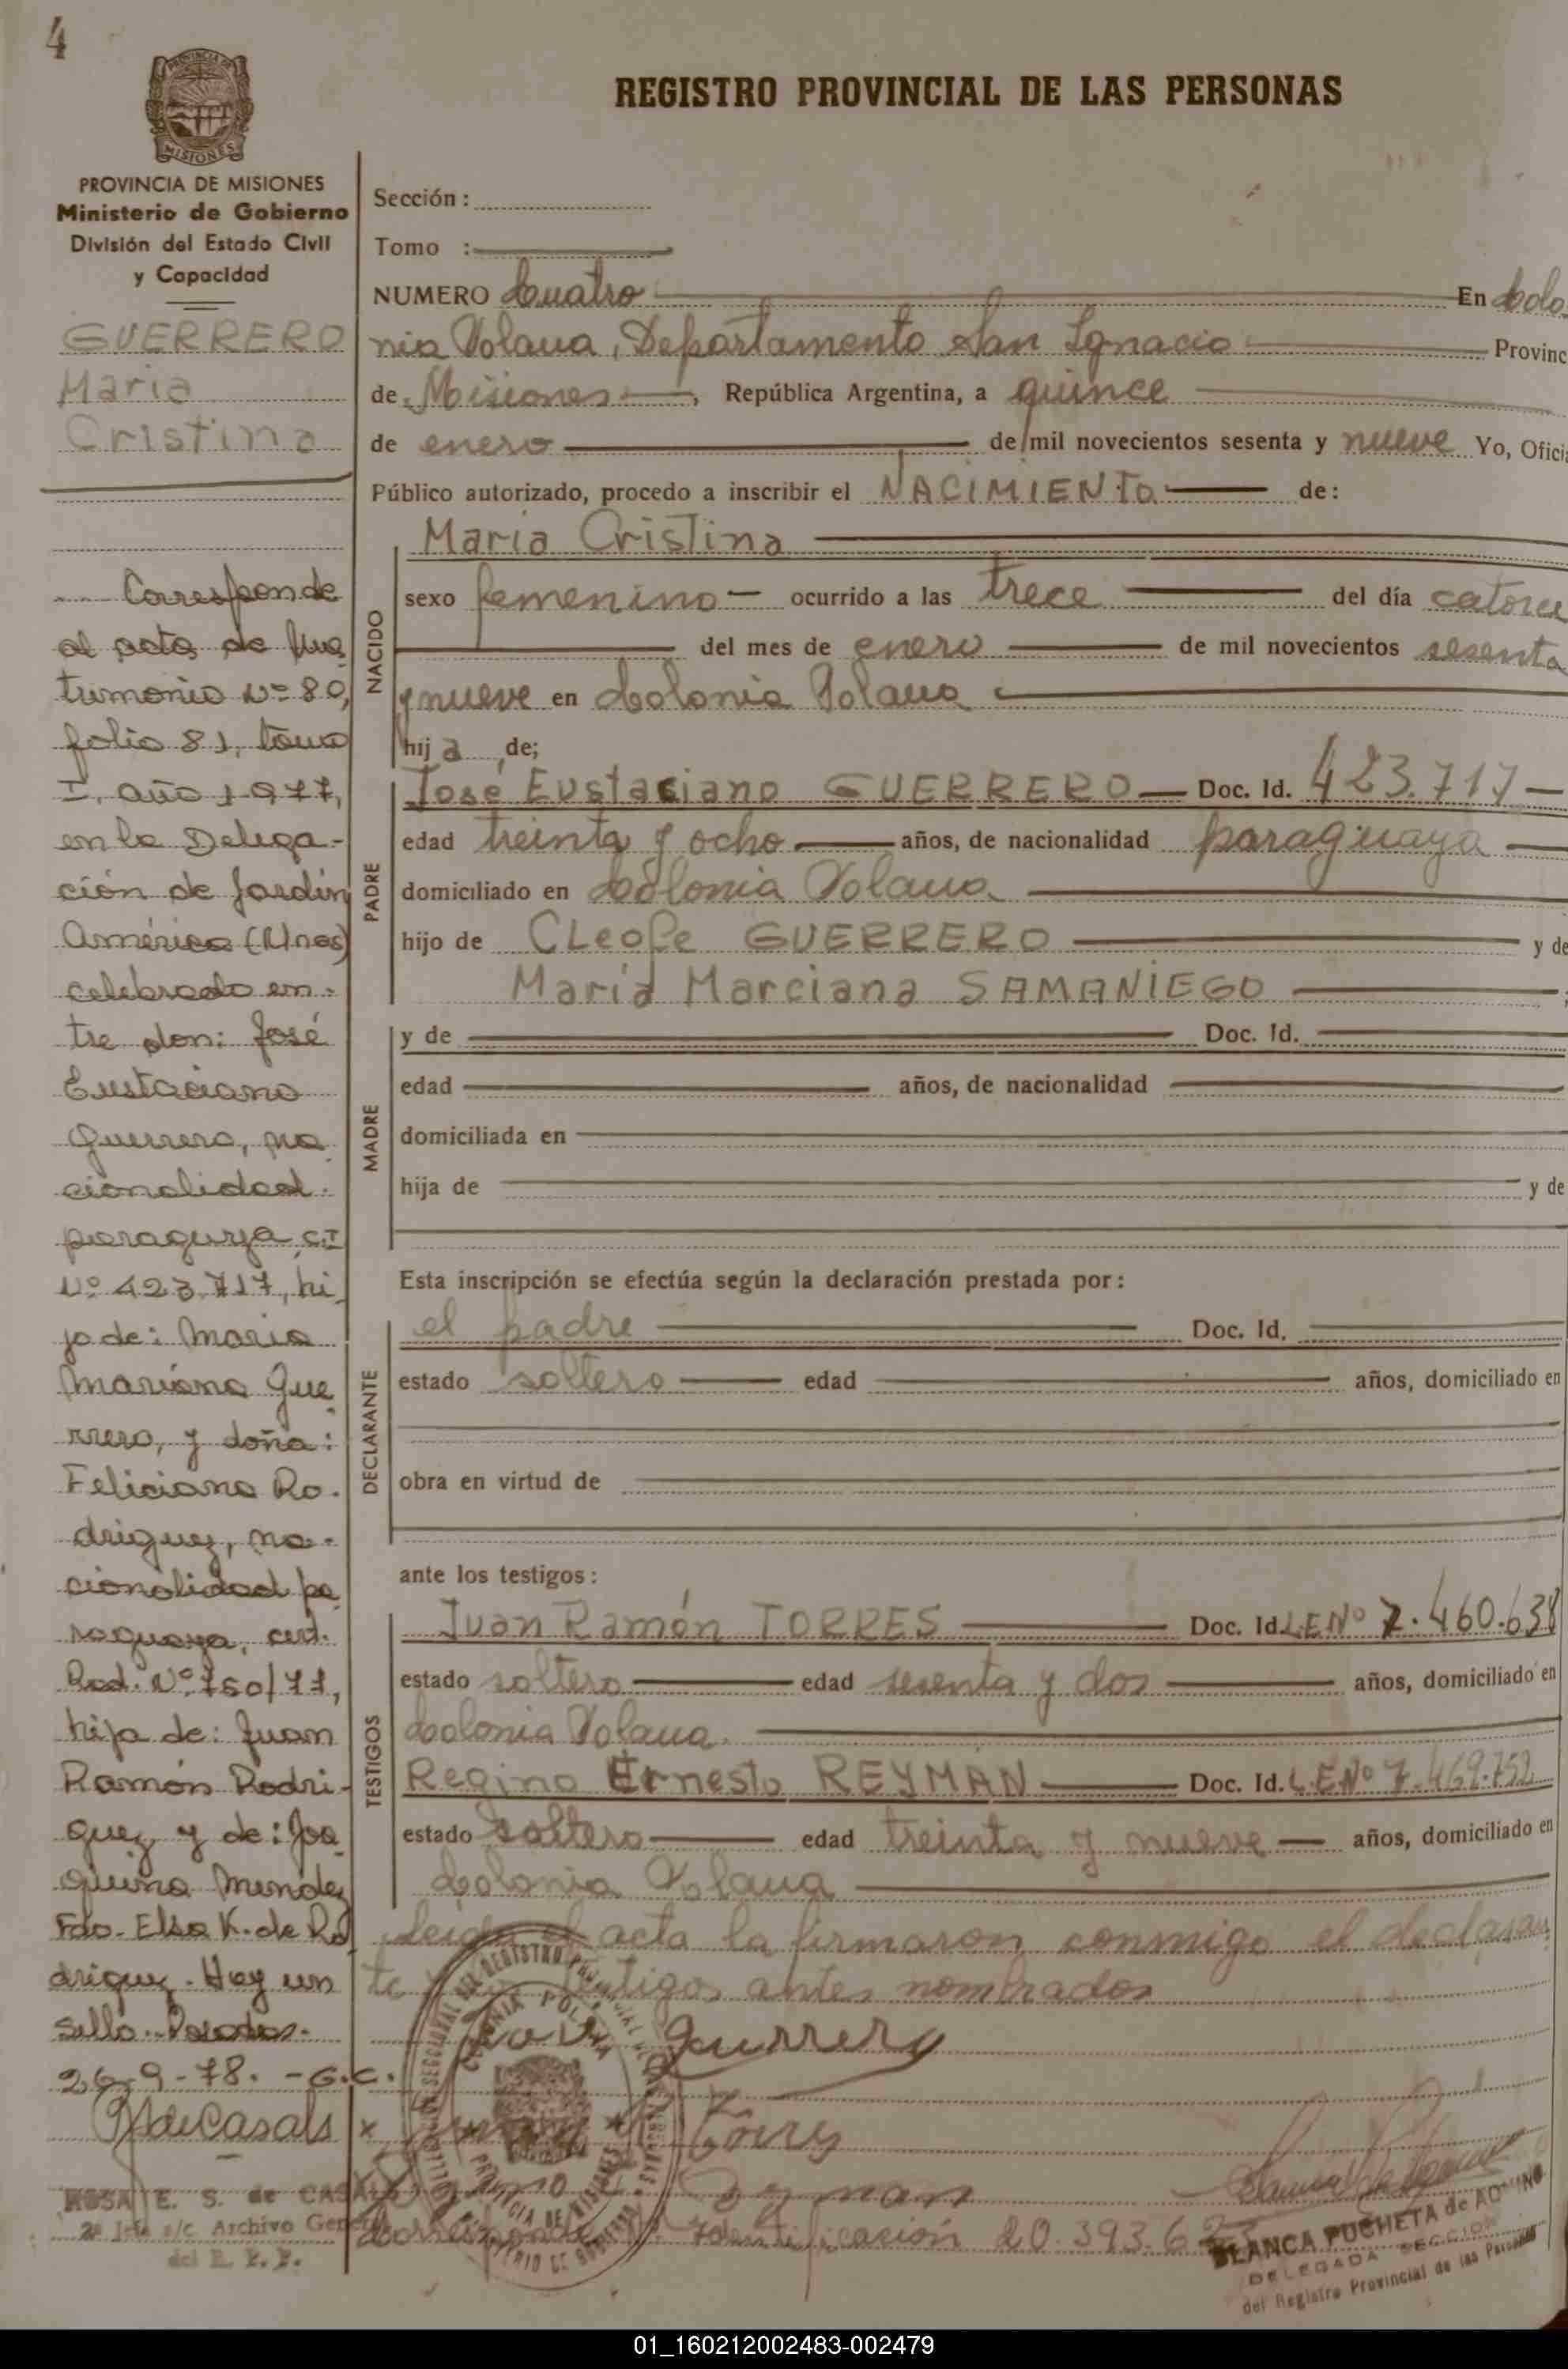 4
PROVINCIA DE
MISIONES
REGISTRO PROVINCIAL DE LAS PERSONAS
PROVINCIA DE MISIONES
Ministerio de Gobierno
División del Estado Civil
y Capacidad
GUERRERO
Maria
Cristina
Corresponde
al acta de Ma
trimonio Nº 80,
folio 81, tomo
I, año 1977,
en la Delega-
ción de Jardín
América (Mnes)
celebrado en-
tre don: José
Eustaciano
Guerrero, na
cionalidad
paraguya C.I
Nº 423.717, hi
jo de: Maria
Mariana Gue
rrero, y doña:
Feliciana Ro-
driguez, na-
cionalidad pa
raguaya, cert.
Rad. Nº 750/77,
hija de: Juan
Ramón Rodri-
guez y de: Joa
quina Mendez
Fdo. Elsa K. de Ro
driguez. Hay un
sello. Posadas.
26-9-78. - G.C.
RdeCasals
ROSA E. S. de CASALS
2ª Jefa a/c. Archivo General
del R. P. P.
Sección:
Tomo :
NUMERO Cuatro En Colo
nia Polana, Departamento San Ignacio Provinc
de Misiones, República Argentina, a quince
de enero de mil novecientos sesenta y nueve Yo, Ofici
Público autorizado, procedo a inscribir el NACIMIENTO de:
NACIDO
Maria Cristina
sexo femenino ocurrido a las trece del día catorce
del mes de enero de mil novecientos sesenta
y nueve en Colonia Polana
hij a de;
PADRE
José Eustaciano GUERRERO Doc. Id. 423.717
edad treinta y ocho años, de nacionalidad paraguaya
domiciliado en Colonia Polana
hijo de Cleofe GUERRERO y de
María Marciana SAMANIEGO
MADRE
y de Doc. Id.
edad años, de nacionalidad
domiciliada en
hija de y de
Esta inscripción se efectúa según la declaración prestada por:
DECLARANTE
el padre Doc. Id.
estado soltero edad años, domiciliado en
obra en virtud de
ante los testigos:
TESTIGOS
Juan Ramón TORRES Doc. Id. L.E.Nº 7.460.638
estado soltero edad sesenta y dos años, domiciliado en
Colonia Polana.
Regino Ernesto REYMAN Doc. Id. L.E.Nº 7.469.752
estado soltero edad treinta y nueve años, domiciliado en
Colonia Polana
Leida el acta la firmaron conmigo el declaran
te testigos antes nombrados
José Guerrero
x Juan R Torres
Regino E. Reyman
Corresponde Identificación 20.393.6
COLONIA POLANA
PROVINCIA DE MISIONES
BLANCA PUCHETA de AQUINO
DELEGADA SECCION
del Registro Provincial de las Personas
01_160212002483-002479